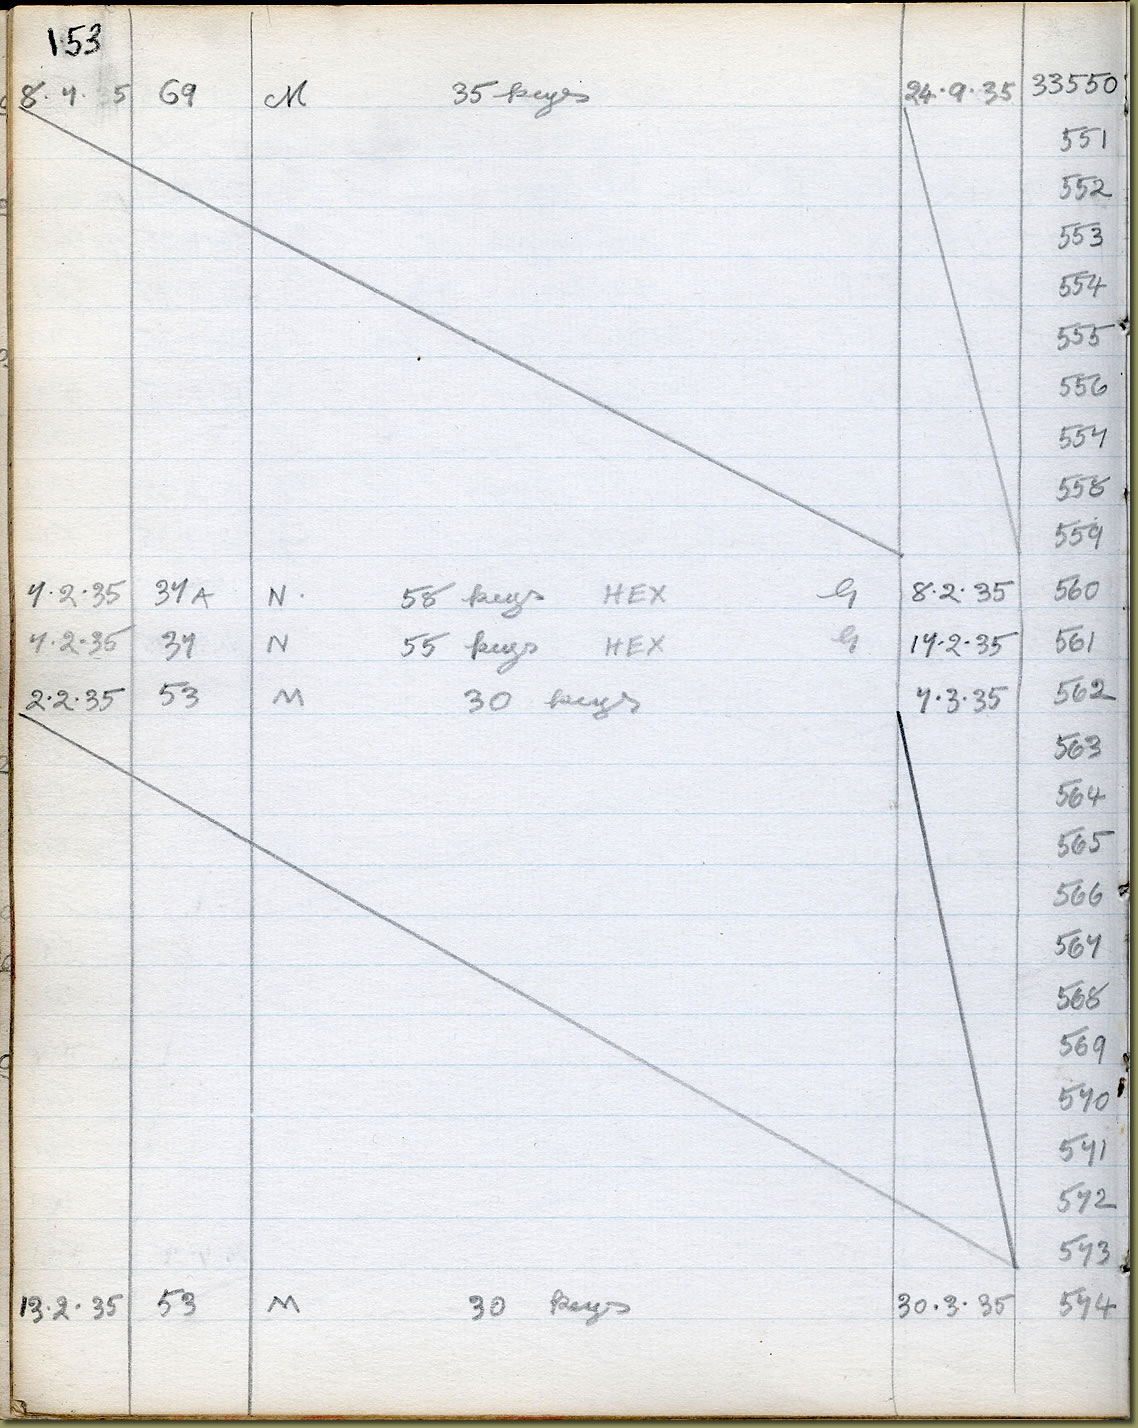 153
8.7.35 69 M 35 keys 24.9.35 33550
551
552
553
554
555
556
557
558
559
7.2.35 37A N. 58 keys HEX G 8.2.35 560
7.2.35 37 N 55 keys HEX G 17.2.35 561
2.2.35 53 M 30 keys 7.3.35 562
563
564
565
566
567
568
569
570
571
572
573
13.2.35 53 M 30 keys 30.3.35 574